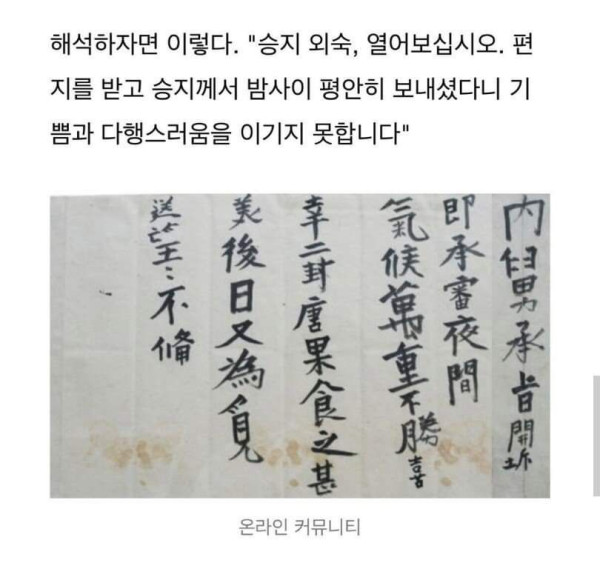 해석하자면 이렇다. "승지 외숙, 열어보십시오. 편
지를 받고 승지께서 밤사이 평안히 보내셨다니 기
쁨과 다행스러움을 이기지 못합니다"
內舅承旨開坼
即承審夜間
氣候萬重不勝喜
幸二封唐果食之甚
美後日又為覓
送望〻不備
온라인 커뮤니티